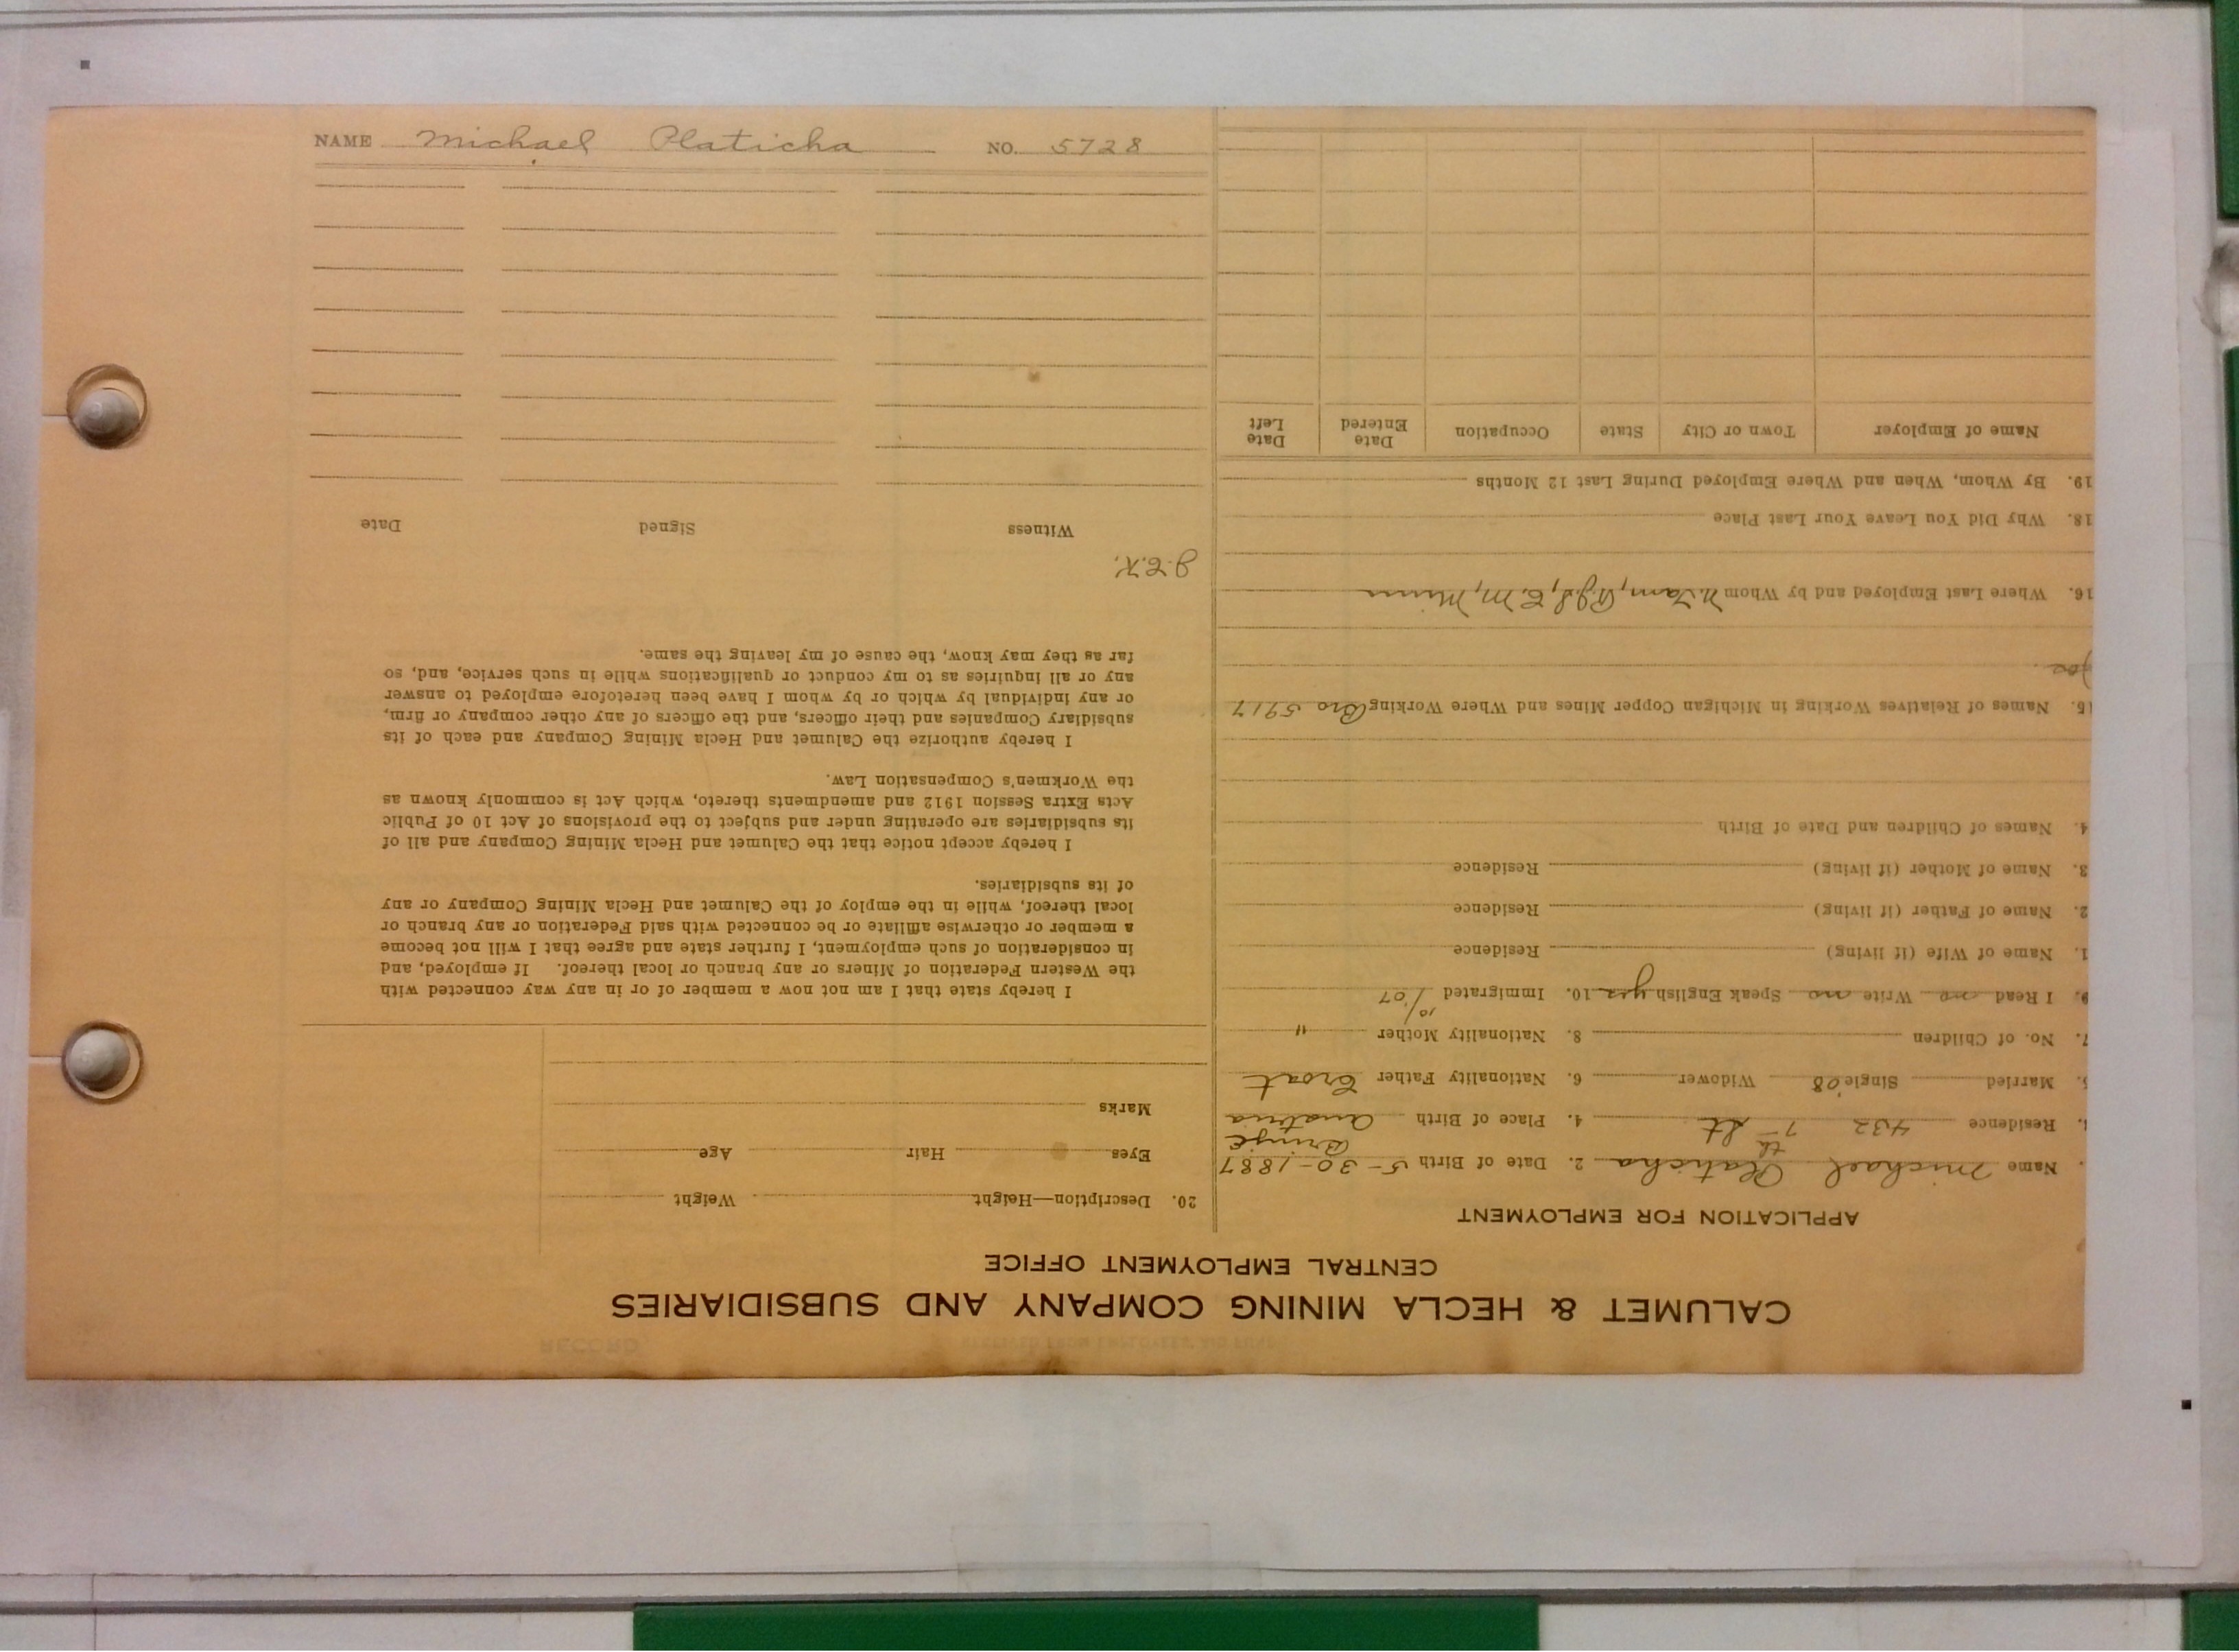 NAME Michael Platicha NO. 5728
CALUMET & HECLA MINING COMPANY AND SUBSIDIARIES
CENTRAL EMPLOYMENT OFFICE
APPLICATION FOR EMPLOYMENT
. Name Michael Platicha 2. Date of Birth 5-30-1887
Residence 432 7th St 4. Place of Birth Austria
Married Single '08 Widower 6. Nationality Father Croat
7. No. of Children 8. Nationality Mother "
9. I Read no Write no Speak English yes 10. Immigrated 10/'07
1. Name of Wife (if living) Residence
2. Name of Father (if living) Residence
3. Name of Mother (if living) Residence
4. Names of Children and Date of Birth
15. Names of Relatives Working in Michigan Copper Mines and Where Working Bro 5917
Joe
16. Where Last Employed and by Whom Minn
18. Why Did You Leave Your Last Place
19. By Whom, When and Where Employed During Last 12 Months
Name of Employer Town or City State Occupation Date Entered Date Left
20. Description—Height Weight
Eyes Hair Age
Marks
I hereby state that I am not now a member of or in any way connected with
the Western Federation of Miners or any branch or local thereof. If employed, and
in consideration of such employment, I further state and agree that I will not become
a member or otherwise affiliate or be connected with said Federation or any branch or
local thereof, while in the employ of the Calumet and Hecla Mining Company or any
of its subsidiaries.
I hereby accept notice that the Calumet and Hecla Mining Company and all of
its subsidiaries are operating under and subject to the provisions of Act 10 of Public
Acts Extra Session 1912 and amendments thereto, which Act is commonly known as
the Workmen's Compensation Law.
I hereby authorize the Calumet and Hecla Mining Company and each of its
subsidiary Companies and their officers, and the officers of any other company or firm,
or any individual by which or by whom I have been heretofore employed to answer
any or all inquiries as to my conduct or qualifications while in such service, and, so
far as they may know, the cause of my leaving the same.
J.E.K.
Witness Signed Date